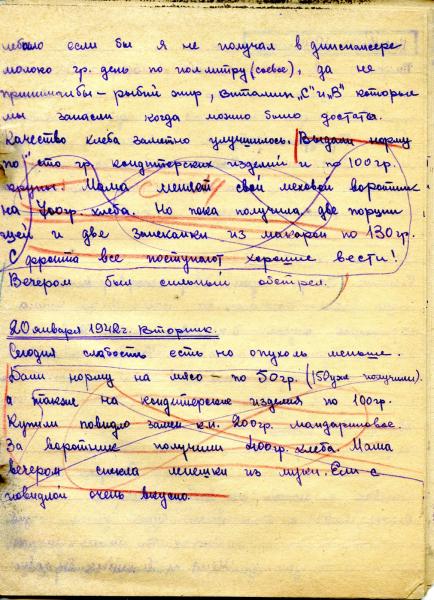 небыло если бы я не получал в диспансере
молоко гр. день по пол литру (соевое), да не
принимги бы - рыбий жир, витамин „С" и „В" которые
мы запасли когда можно было достать.
Качество хлеба заметно улучшилось. Выдали норму
по сто гр. кондитерских изделий и по 100 гр.
крупы. Мама меняет свой меховой воротник
на 400гр. хлеба. Но пока получила две порции
щей и две запеканки из макарон по 130 гр.
С фронта все поступают хорошие вести!
Вечером был сильный обстрел.
20 января 1942г. Вторник.
Сегодня слабость есть но опухоль меньше.
Дали норму на мясо - по 50гр. (150 уже получили).
а также на кондитерские изделия по 100 гр.
Купили повидло замен. к.и. 200гр. мандариновое.
За воротник получили 400гр. хлеба. Мама
вечером спекла лепешки из муки. Ели с
повидлой очень вкусно.